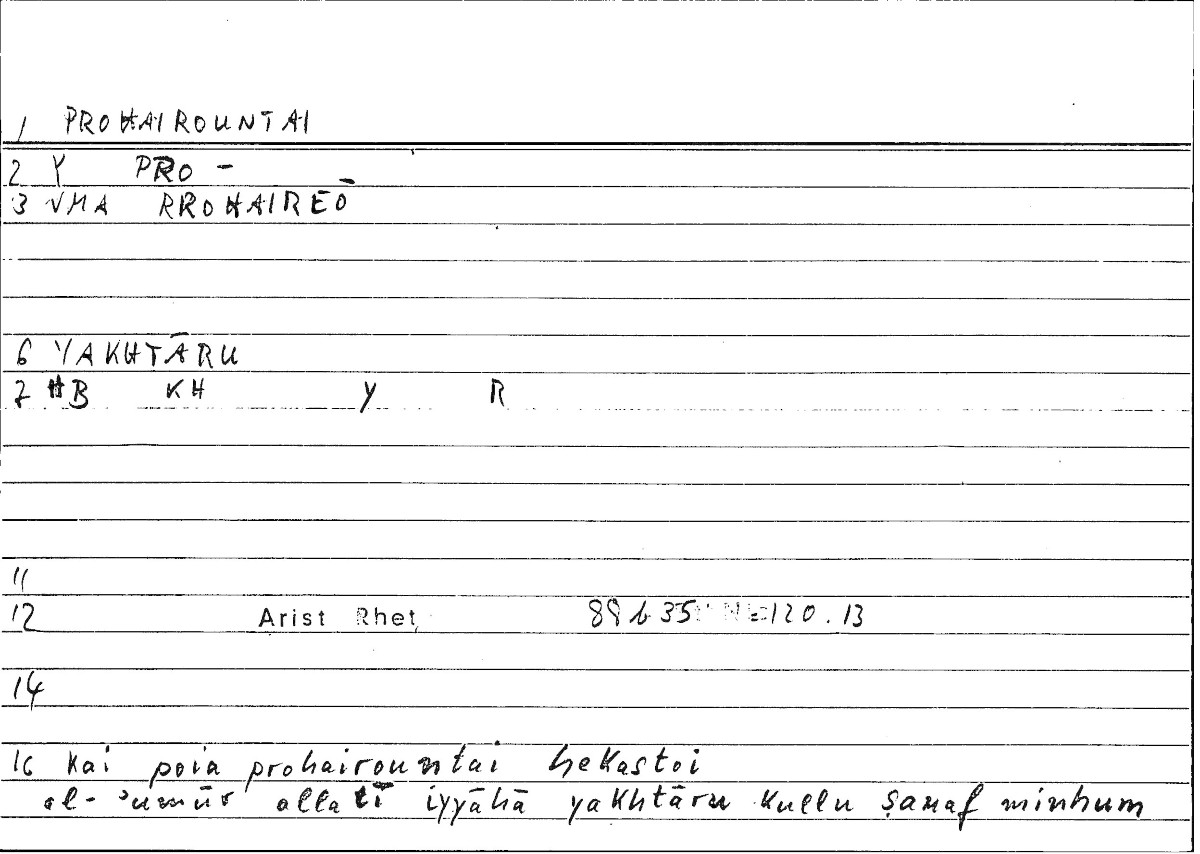 1 PROHAIROUNTAI
2 Y PRO -
3 VMA PROHAIREŌ
6 YAKHTĀRU
7 HB KH Y R
11
12 Arist Rhet 88b35 120.13
14
16 Kai poia prohairountai hekastoi
al-ʾumūr allatī iyyāhā yakhtāru kullu ṣanaf minhum